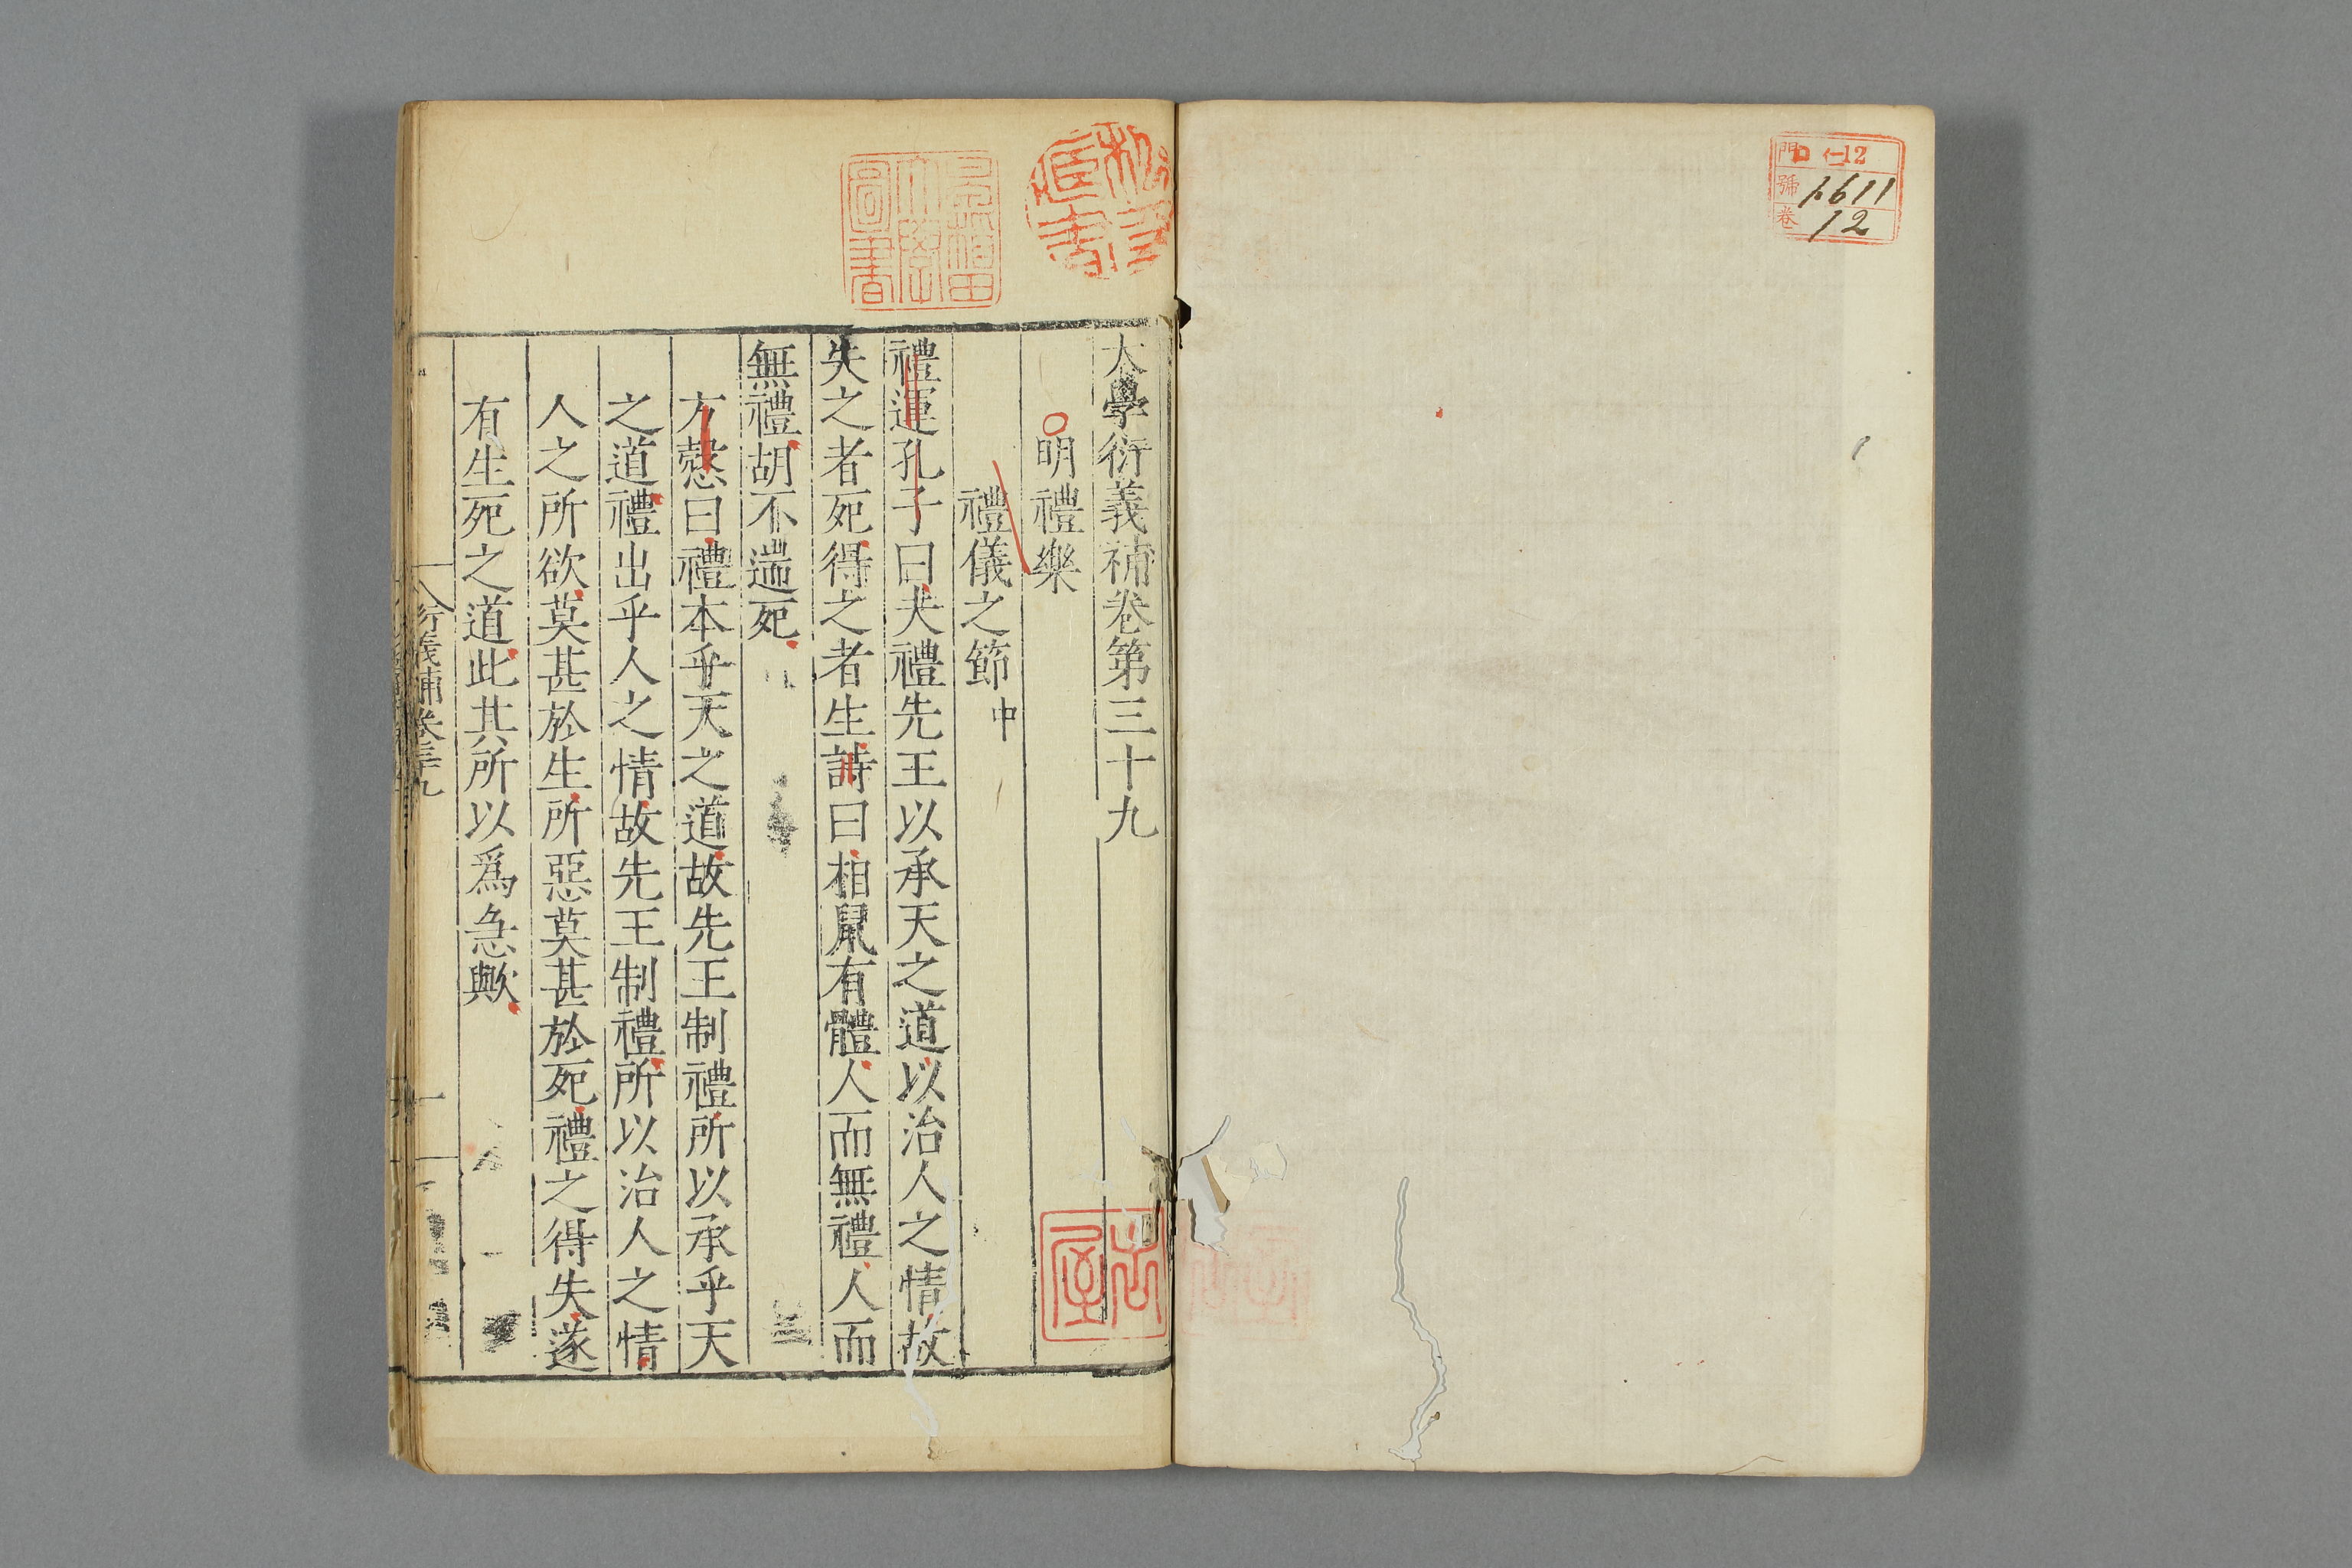 門 ロ 仁12
號 1611
卷 12
大學衍義補卷第三十九
明禮樂
禮儀之節中
禮運孔子曰夫禮先王以承天之道以治人之情故
失之者死得之者生詩曰相鼠有體人而無禮人而
無禮胡不遄死
方慤曰禮本乎天之道故先王制禮所以承乎天
之道禮出乎人之情故先王制禮所以治人之情
人之所欲莫甚於生所惡莫甚於死禮之得失遂
有生死之道此其所以爲急歟
衍義補卷三十九
一
早稻田大學圖書